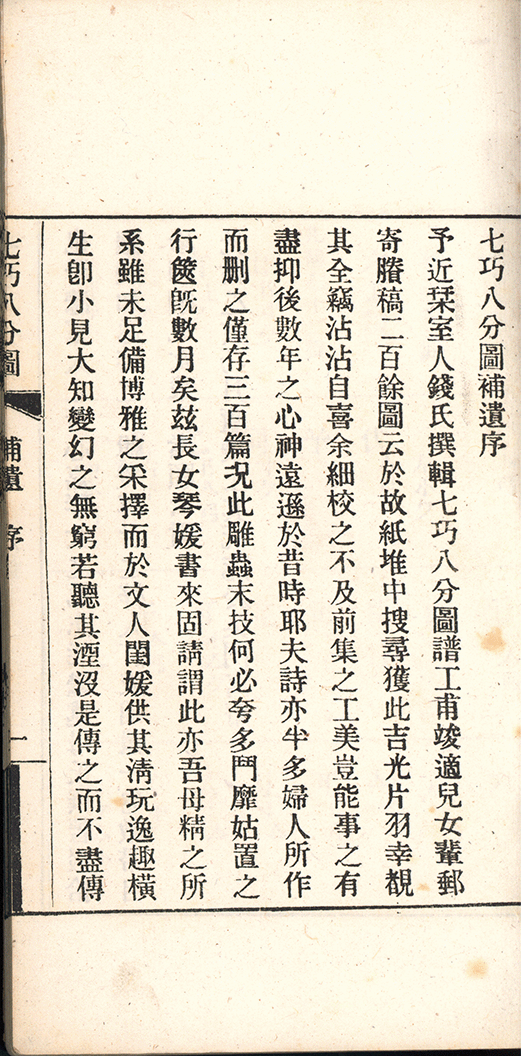 七巧八分圖補遺序
予近栞室人錢氏撰輯七巧八分圖譜工甫竣適兒女輩郵
寄賸稿二百餘圖云於故紙堆中搜尋獲此吉光片羽幸覩
其全竊沾沾自喜余細校之不及前集之工美豈能事之有
盡抑後數年之心神遠遜於昔時耶夫詩亦半多婦人所作
而刪之僅存三百篇况此雕蟲末技何必夸多鬥靡姑置之
行篋旣數月矣玆長女琴媛書來固請謂此亦吾母精之所
系雖未足備博雅之采擇而於文人閨媛供其淸玩逸趣橫
生卽小見大知變幻之無窮若聽其湮沒是傳之而不盡傳
七巧八分圖 補遺 序 一